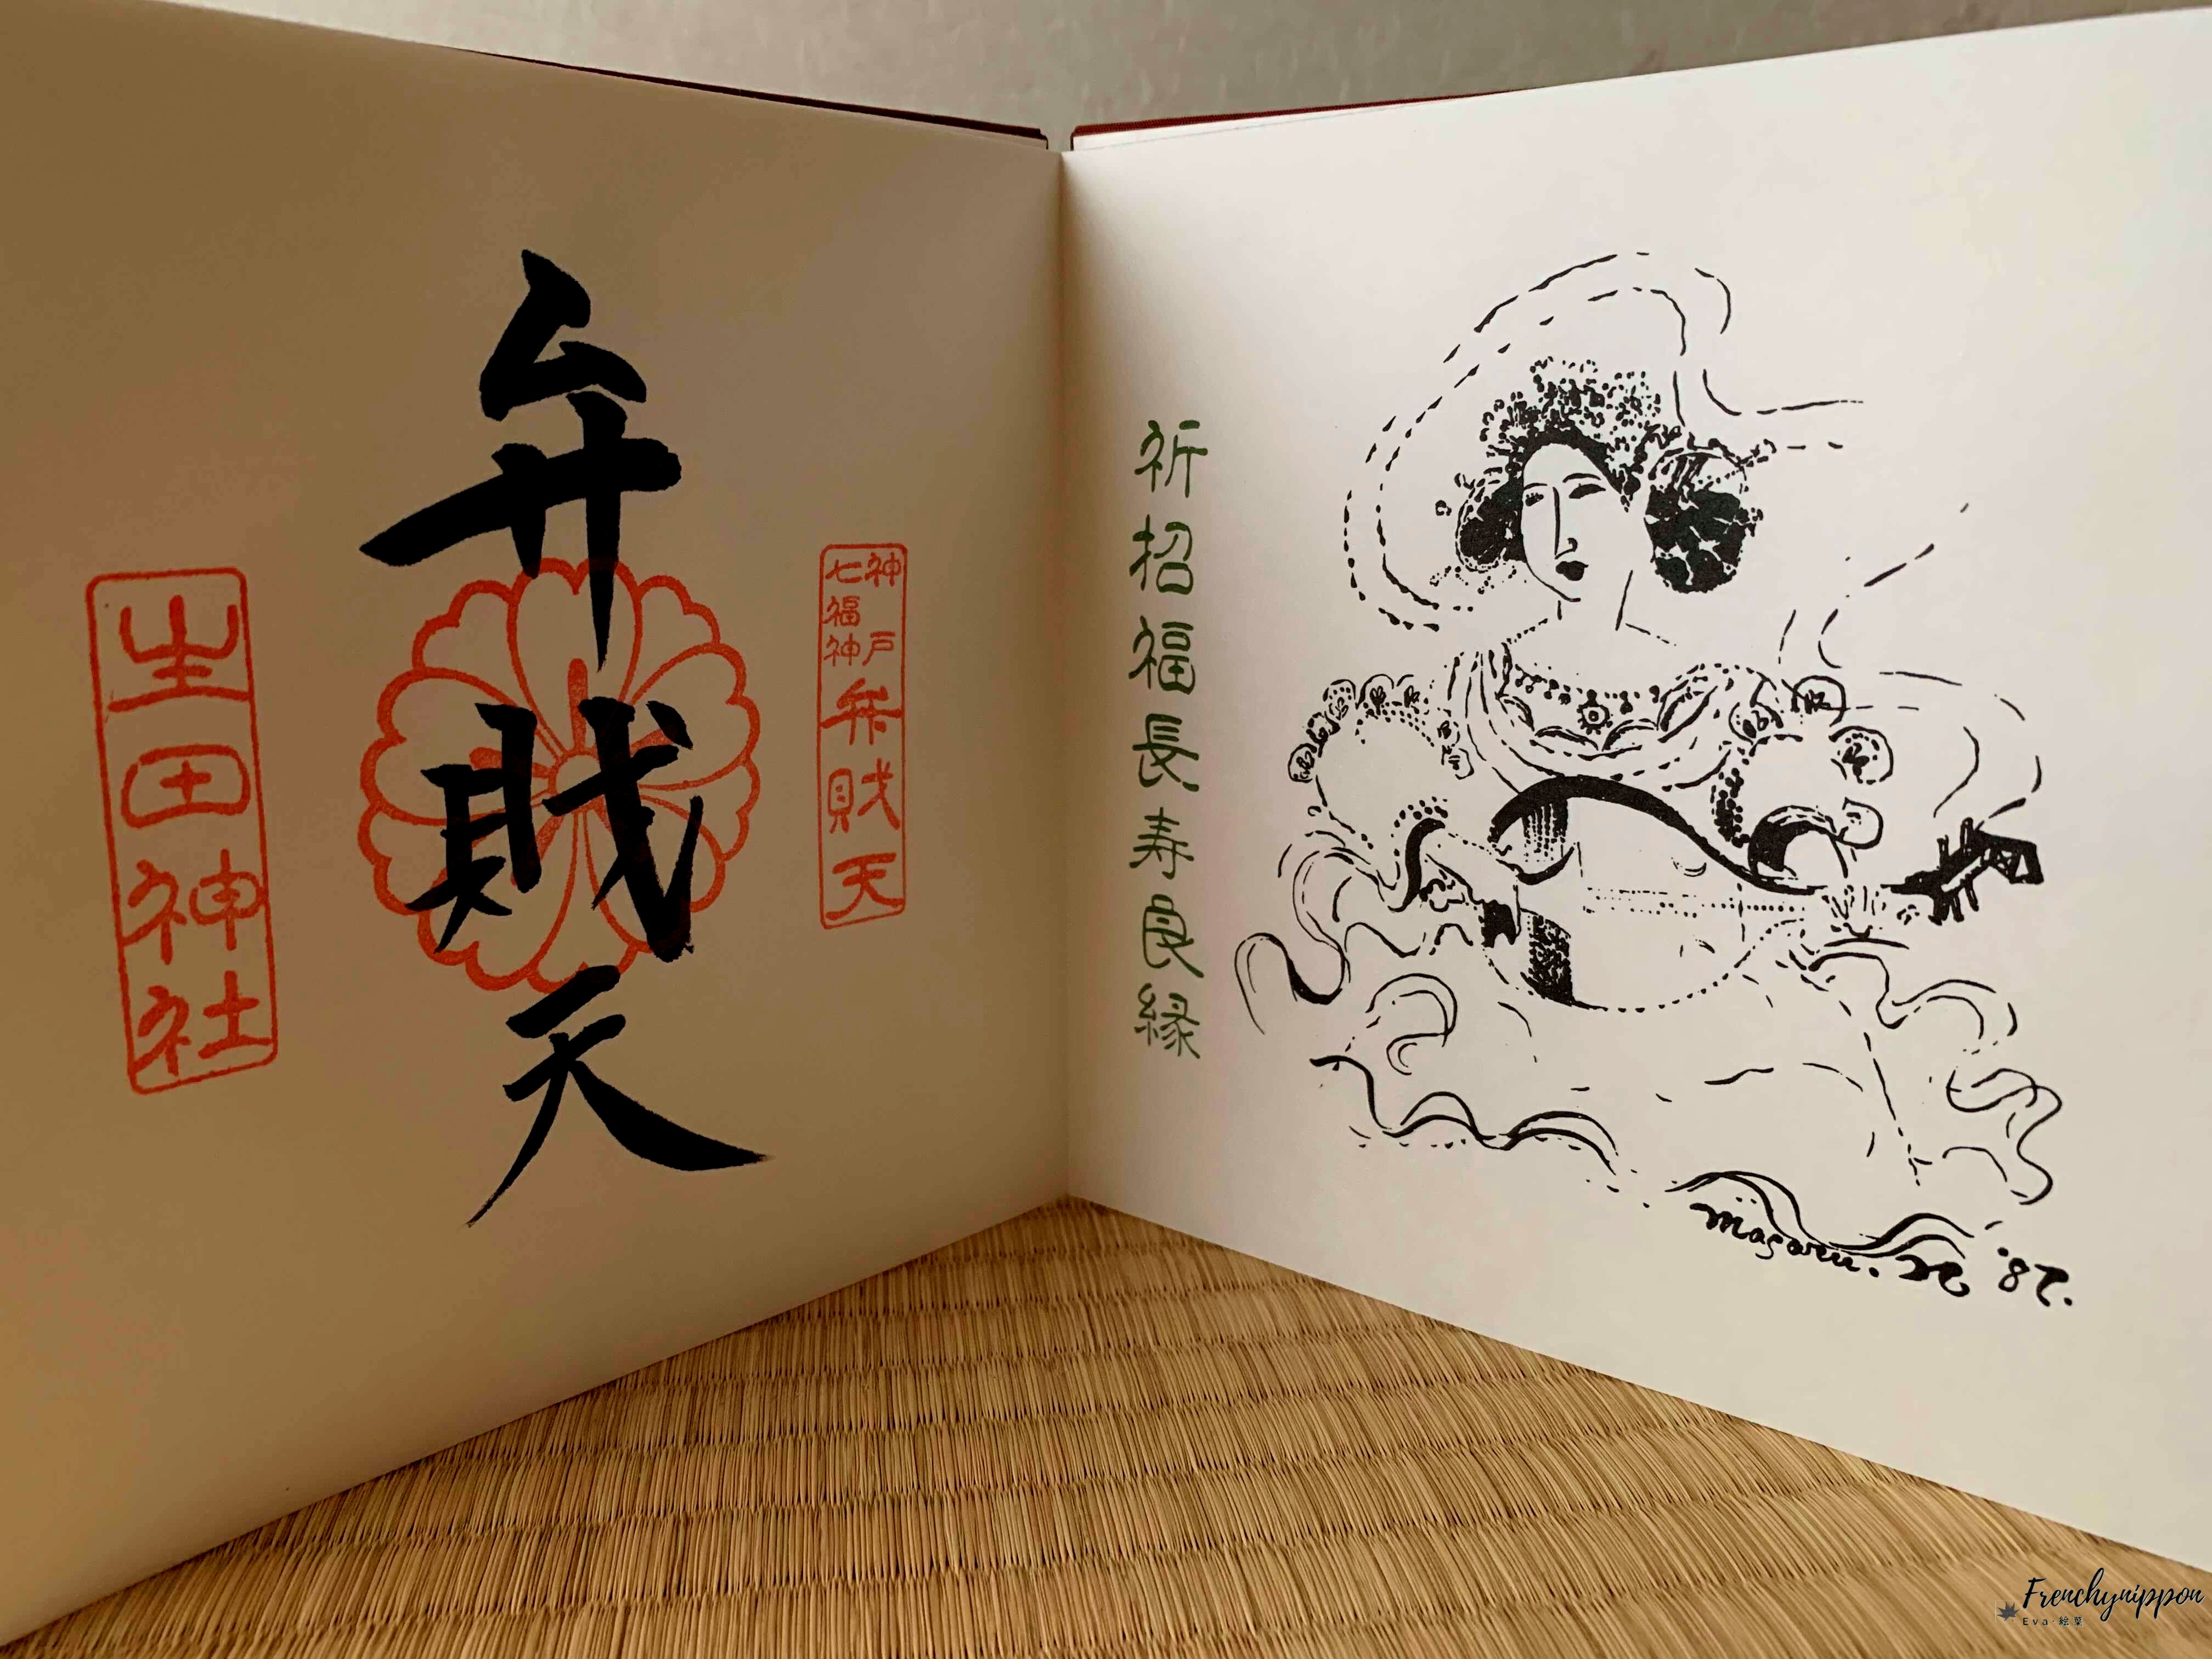 弁財天
神戸
七福神
弁財天
生田神社
祈招福長寿良縁
masaru.
28.
Frenchynippon
Eva 絵葉